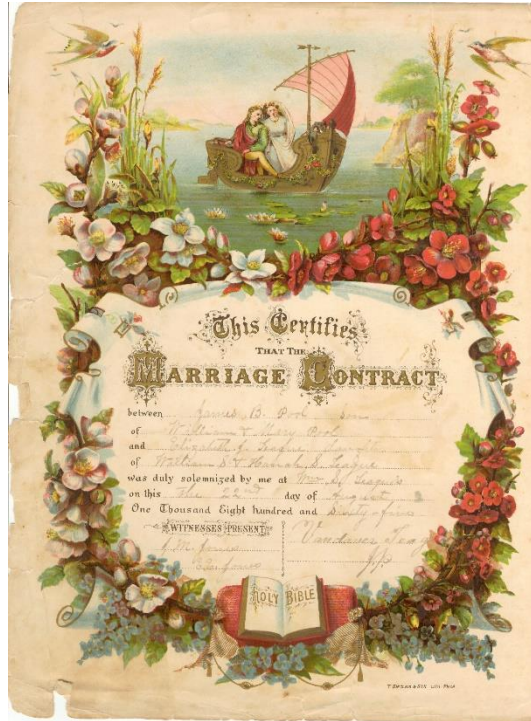 This Certifies
THAT THE
MARRIAGE CONTRACT
between James B. Pool son
of William & Mary Pool
and Elizabeth J. League
of William S & Hannah S. League
was duly solemnized by me at Wm S. Leagues
on this the 22nd day of August
One Thousand Eight hundred and
WITNESSES PRESENT
Vandaver
J.P.
HOLY BIBLE